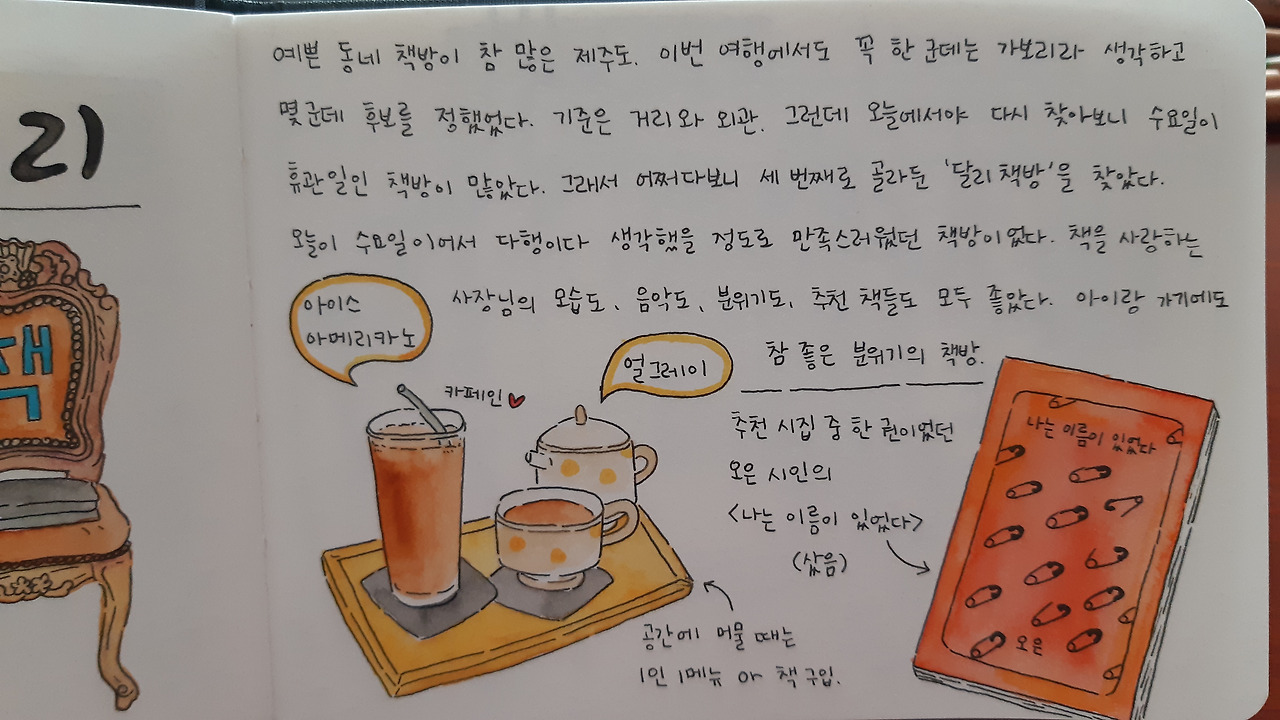 리
책
예쁜 동네 책방이 참 많은 제주도. 이번 여행에서도 꼭 한 군데는 가보리라 생각하고
몇군데 후보를 정했었다. 기준은 거리와 외관. 그런데 오늘에서야 다시 찾아보니 수요일이
휴관일인 책방이 많았다. 그래서 어쩌다보니 세 번째로 골라둔 '달리책방'을 찾았다.
오늘이 수요일이어서 다행이다 생각했을 정도로 만족스러웠던 책방이었다. 책을 사랑하는
사장님의 모습도, 음악도, 분위기도, 추천 책들도 모두 좋았다. 아이랑 가기에도
참 좋은 분위기의 책방.
아이스
아메리카노
카페인♥
얼그레이
추천 시집 중 한 권이었던
오은 시인의
<나는 이름이 있었다>
(샀음)
공간에 머물 때는
1인 1메뉴 or 책 구입.
나는 이름이 있었다
오은